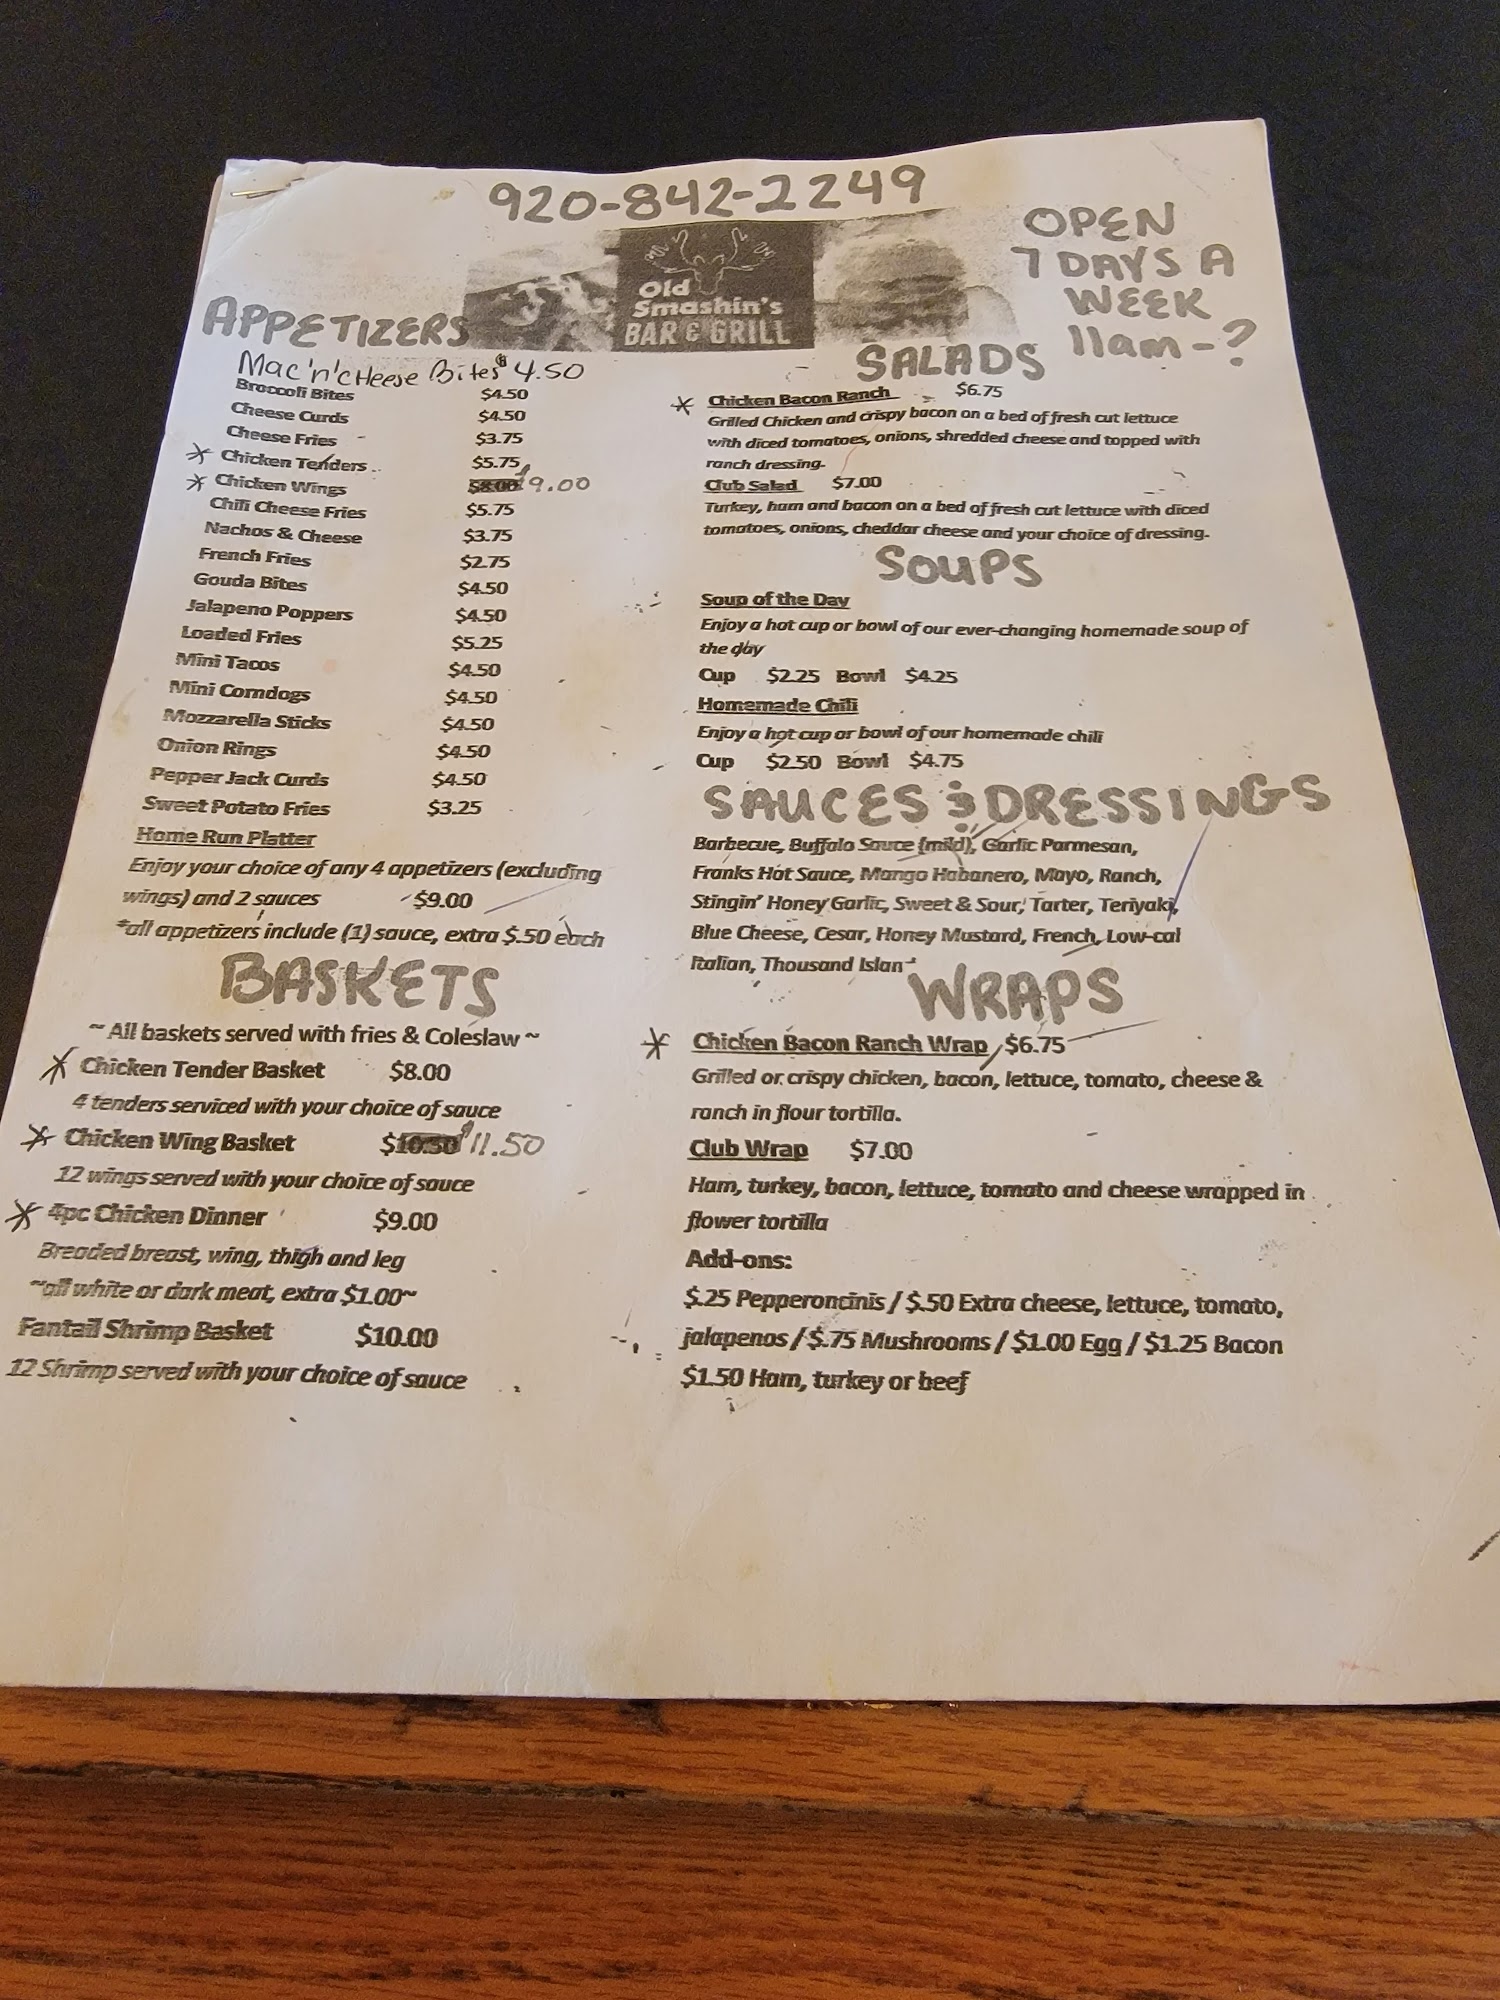 920-842-2249
OPEN
7 DAYS A
WEEK
11am-?
Old
Smashin's
BAR & GRILL
APPETIZERS
Mac'n'cHeese Bites $4.50
Broccoli Bites $4.50
Cheese Curds $4.50
Cheese Fries $3.75
* Chicken Tenders $5.75
* Chicken Wings $8.00 $9.00
Chili Cheese Fries $5.75
Nachos & Cheese $3.75
French Fries $2.75
Gouda Bites $4.50
Jalapeno Poppers $4.50
Loaded Fries $5.25
Mini Tacos $4.50
Mini Corndogs $4.50
Mozzarella Sticks $4.50
Onion Rings $4.50
Pepper Jack Curds $4.50
Sweet Potato Fries $3.25
Home Run Platter
Enjoy your choice of any 4 appetizers (excluding
wings) and 2 sauces $9.00
*all appetizers include (1) sauce, extra $.50 each
BASKETS
~ All baskets served with fries & Coleslaw ~
* Chicken Tender Basket $8.00
4 tenders serviced with your choice of sauce
* Chicken Wing Basket $10.50 $11.50
12 wings served with your choice of sauce
* 4pc Chicken Dinner $9.00
Breaded breast, wing, thigh and leg
~all white or dark meat, extra $1.00~
Fantail Shrimp Basket $10.00
12 Shrimp served with your choice of sauce
SALADS
* Chicken Bacon Ranch $6.75
Grilled Chicken and crispy bacon on a bed of fresh cut lettuce
with diced tomatoes, onions, shredded cheese and topped with
ranch dressing.
Club Salad $7.00
Turkey, ham and bacon on a bed of fresh cut lettuce with diced
tomatoes, onions, cheddar cheese and your choice of dressing.
SOUPS
Soup of the Day
Enjoy a hot cup or bowl of our ever-changing homemade soup of
the day
Cup $2.25 Bowl $4.25
Homemade Chili
Enjoy a hot cup or bowl of our homemade chili
Cup $2.50 Bowl $4.75
SAUCES & DRESSINGS
Barbecue, Buffalo Sauce (mild), Garlic Parmesan,
Franks Hot Sauce, Mango Habanero, Mayo, Ranch,
Stingin' Honey Garlic, Sweet & Sour, Tarter, Teriyaki,
Blue Cheese, Cesar, Honey Mustard, French, Low-cal
Italian, Thousand Islan
WRAPS
* Chicken Bacon Ranch Wrap $6.75
Grilled or crispy chicken, bacon, lettuce, tomato, cheese &
ranch in flour tortilla.
Club Wrap $7.00
Ham, turkey, bacon, lettuce, tomato and cheese wrapped in
flower tortilla
Add-ons:
$.25 Pepperoncinis / $.50 Extra cheese, lettuce, tomato,
jalapenos / $.75 Mushrooms / $1.00 Egg / $1.25 Bacon
$1.50 Ham, turkey or beef